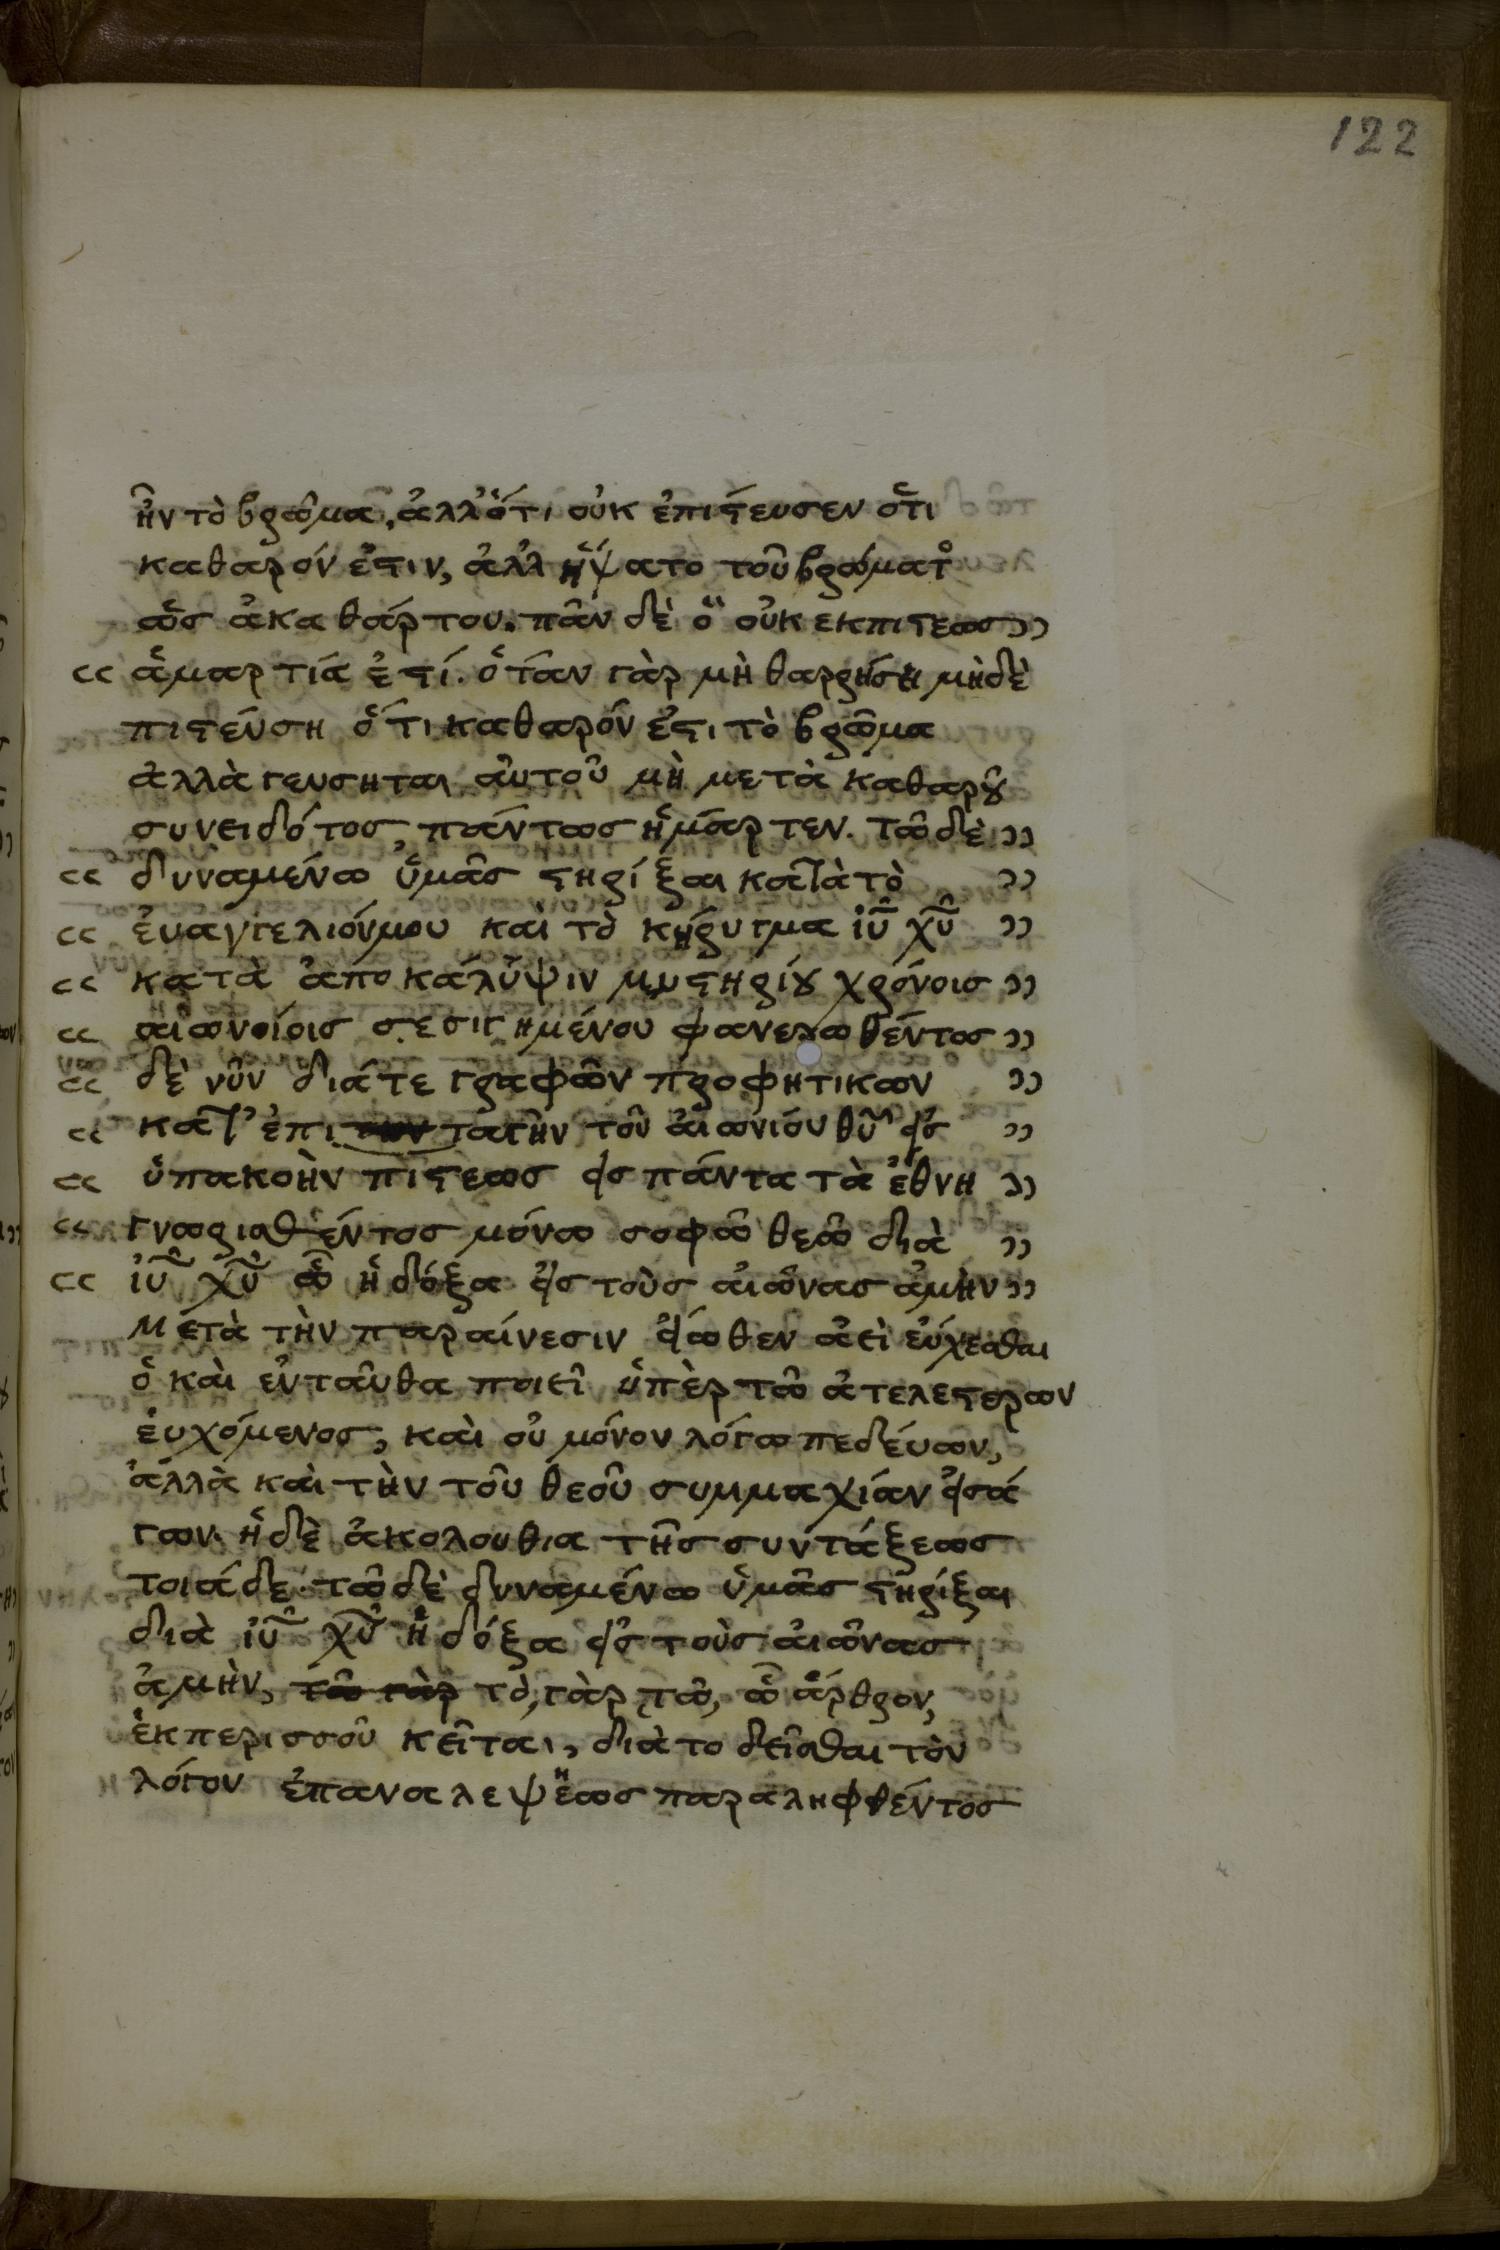 122
ἦν τὸ βρῶμα, ἀλλ' ὅτι οὐκ ἐπίστευσεν ὅτι
καθαρόν ἐστιν, ἀλλ ἥψατο τοῦ βρώματο
ὡς ἀκαθάρτου. πᾶν δὲ ὃ οὐκ εκπιστεως ))
(( ἁμαρτία ἐστί. ὅταν γὰρ μὴ θαρρήση μηδὲ
πιστεύση ὅτι καθαρόν ἐστι τὸ βρῶμα
ἀλλὰ γευσηται αὐτοῦ μὴ μετὰ καθαροῦ
συνειδότος, πάντως ἥμαρτεν. τῶ δὲ ))
(( δυναμένω ὑμᾶς στηρίξαι κατὰ τὸ ))
(( ἐυαγγελιόν μου καὶ τὸ κήρυγμα ἰῦ χῦ ))
(( κατὰ ἀποκάλυψιν μυστηρίου χρόνοις ))
(( αἰωνοίοις σεσιγημένου φανερωθέντος ))
(( δὲ νῦν διάτε γραφῶν προφητικων ))
(( κατ' ἐπιταγὴν τοῦ ἀιωνίου θῦ εἰς ))
(( ὑπακοὴν πίστεως εἰς πάντα τὰ ἔθνη ))
(( γνωρισθέντος μόνω σοφῶ θεῶ διὰ ))
(( ἰῦ χῦ ὧ ἡ δόξα εἰς τοὺς αἰῶνας ἀμὴν ))
Μετὰ τὴν παραίνεσιν εἴωθεν ἀεὶ εὔχεσθαι
ὃ καὶ ἐνταῦθα ποιεῖ ὑπὲρ τῶ ἀτελεστερων
ἐυχόμενος, καὶ οὐ μόνον λόγω πεδέυων,
ἀλλὰ καὶ τὴν τοῦ θεοῦ συμμαχίαν εἰσά
γων. ἡ δὲ ἀκολουθια τῆς συντάξεως
τοιάδε. τῶ δὲ δυναμένω ὑμᾶς στηρίξαι
διὰ ἰῦ χῦ ἡ δόξα εἰς τοὺς ἀιῶνας
ἀμὴν, τὸ, γὰρ τῶ, ὧ ἄρθρον,
ἐκπερισσοῦ κεῖται, διὰ το δεῖσθαι τὸν
λόγον ἐπαναλεψέως παραληφθέντος